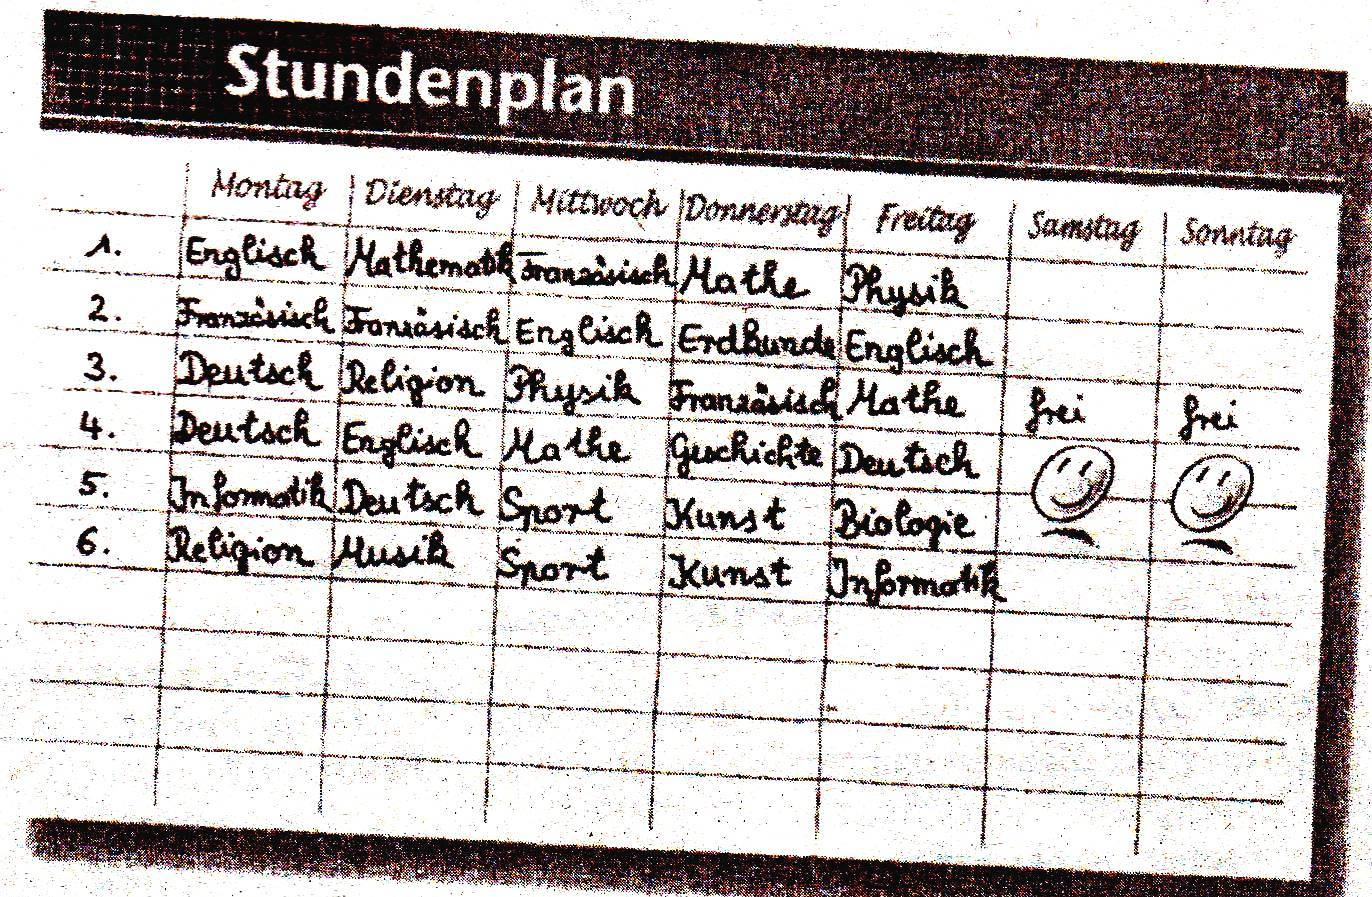 Stundenplan
Montag Dienstag Mittwoch Donnerstag Freitag Samstag Sonntag
1. Englisch Mathematik Französisch Mathe Physik
2. Französisch Französisch Englisch Erdkunde Englisch
3. Deutsch Religion Physik Französisch Mathe frei frei
4. Deutsch Englisch Mathe Geschichte Deutsch
5. Informatik Deutsch Sport Kunst Biologie
6. Religion Musik Sport Kunst Informatik